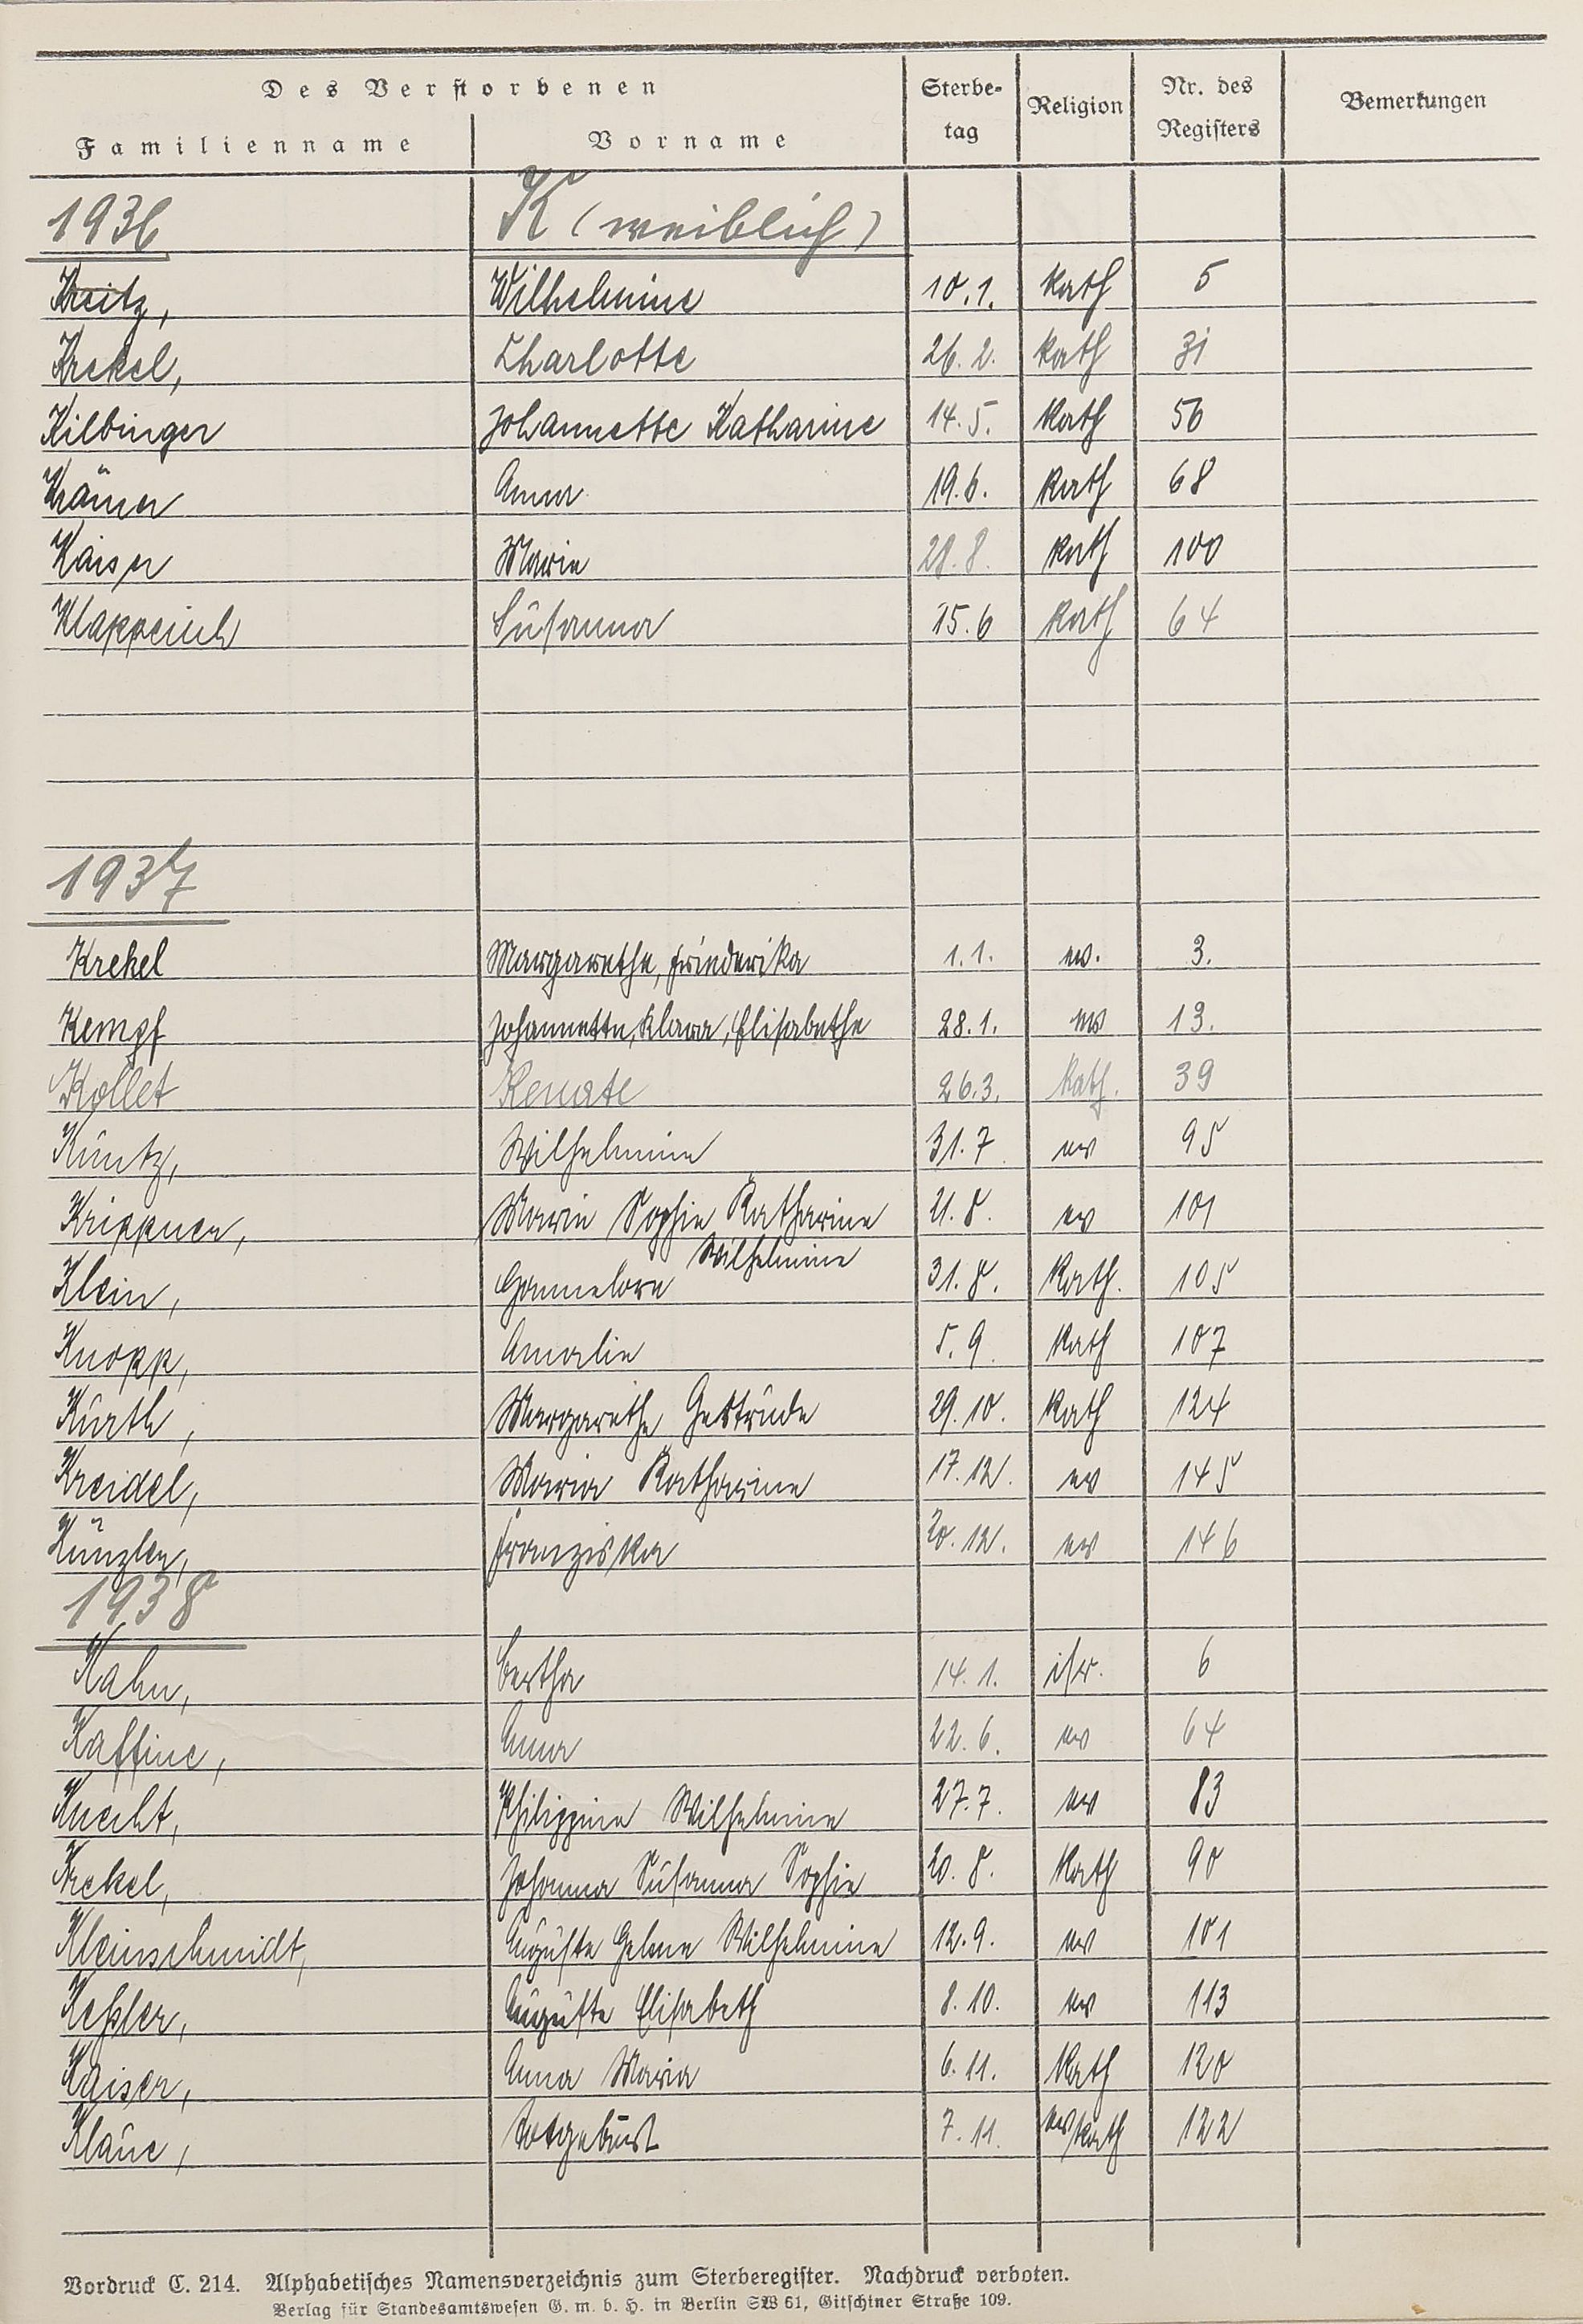 Des Verstorbenen Sterbe- Religion Nr. des Bemerkungen
Familienname Vorname tag Registers
1936 K (weiblich)
Kreitz, Wilhelmine 10.1. Kath 5
Krekel, Charlotte 26.2. Kath 31
Kilbinger Johannette Katharine 14.5. Kath 56
Krämer Anna 19.6. Kath 68
Kaiser Marie 28.8. Kath 100
Klappeich Susanna 15.6 Kath 64
1937
Krekel Margarethe, Friederika 1.1. ev. 3.
Kempf Johannette, Klara, Elisabethe 28.1. ev 13.
Kollet Renate 26.3. Kath. 39
Kuntz, Wilhelmine 31.7. ev 95
Krippner, Marie Sophie Katharine 21.8. ev 101
Wilhelmine
Klein, Hannelore 31.8. Kath. 105
Knopp, Amalie 5.9. Kath 107
Kurth, Margarethe Gertrude 29.10. Kath 124
Kreidel, Maria Katharine 17.12. ev 145
Künzler, Franziska 20.12. ev 146
1938
Kahn, Bertha 14.1. isr. 6
Kaffine, Anna 22.6. ev 64
Knecht, Philippine Wilhelmine 27.7. ev 83
Krekel, Johanna Susanna Sophie 20.8. Kath 90
Kleinschmidt, Auguste Helene Wilhelmine 12.9. ev 101
Keßler, Auguste Elisabeth 8.10. ev 113
Kaiser, Anna Maria 6.11. Kath 120
Klaue, Totgeburt 7.11. ev/Kath 122
Vordruck C. 214. Alphabetisches Namensverzeichnis zum Sterberegister. Nachdruck verboten.
Verlag für Standesamtswesen G. m. b. H. in Berlin SW 61, Gitschiner Straße 109.